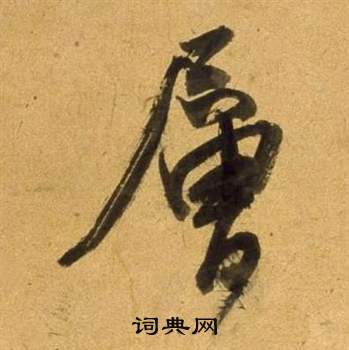 層
词典网